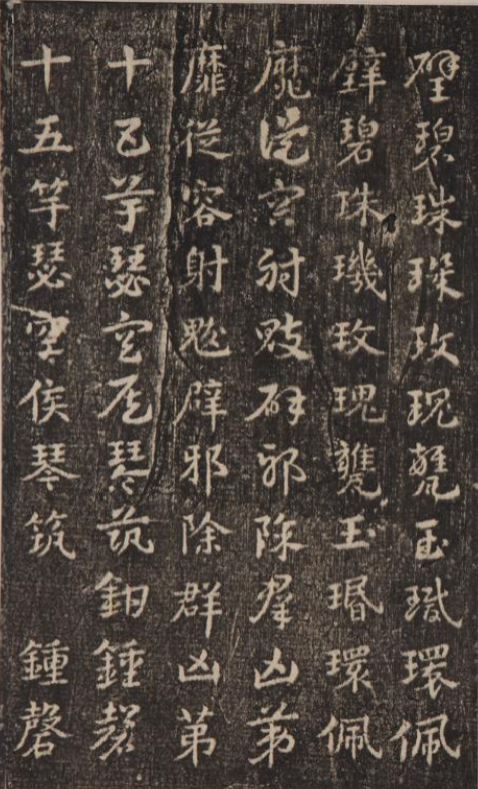 璧碧珠璣玫瑰甕玉環佩
璧碧珠璣玫瑰甕玉環佩
靡從容射鬾辟邪除群凶第
靡從容射鬾辟邪除群凶第
十五竽瑟空侯琴筑鍾磬
十五竽瑟空侯琴筑 鍾磬